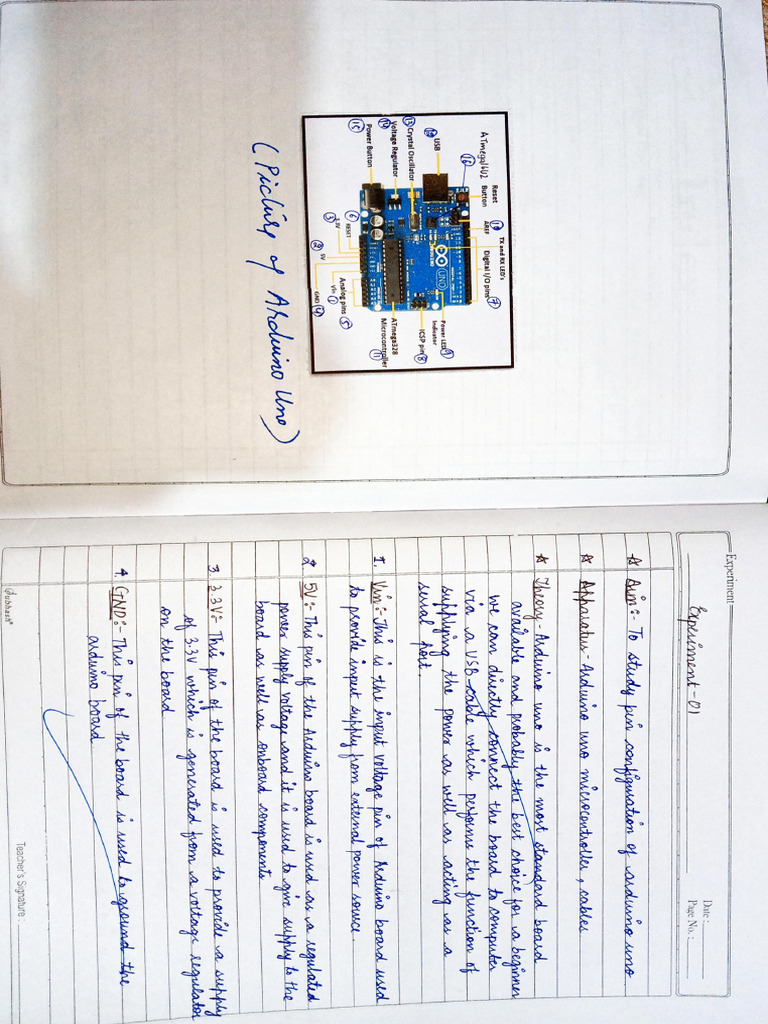 ATmega16U2
Reset
Button
16
18
AREF
TX and RX LED's
Digital I/O pins
7
10
USB
13
Crystal Oscillator
14
Voltage Regulator
15
Power Button
UNO
Power LED
Indicator
9
ICSP pin
8
ATmega328
Microcontroller
11
6
RESET
3
3.3V
2
5V
Analog pins
5
Vin
1
GND
4
(Picture of Arduino Uno)
Experiment
Date :
Page No. :
Experiment-01
☆ Aim:- To study pin configuration of arduino uno
☆ Apparatus - Arduino uno microcontroller, cables
☆ Theory - Arduino uno is the most standard board
available and probably the best choice for a beginner
we can directly connect the board to computer
via a USB cable which performs the function of
supplying the power as well as acting as a
serial port.
1. Vin:- This is the input voltage pin of Arduino board used
to provide input supply from external power source.
2. 5V:- This pin of the Arduino board is used as a regulated
power supply voltage and it is used to give supply to the
board as well as onboard components
3. 3.3V:- This pin of the board is used to provide a supply
of 3.3V which is generated from a voltage regulator
on the board
4. GND:- This pin of the board is used to ground the
arduino board
Teacher's Signature :